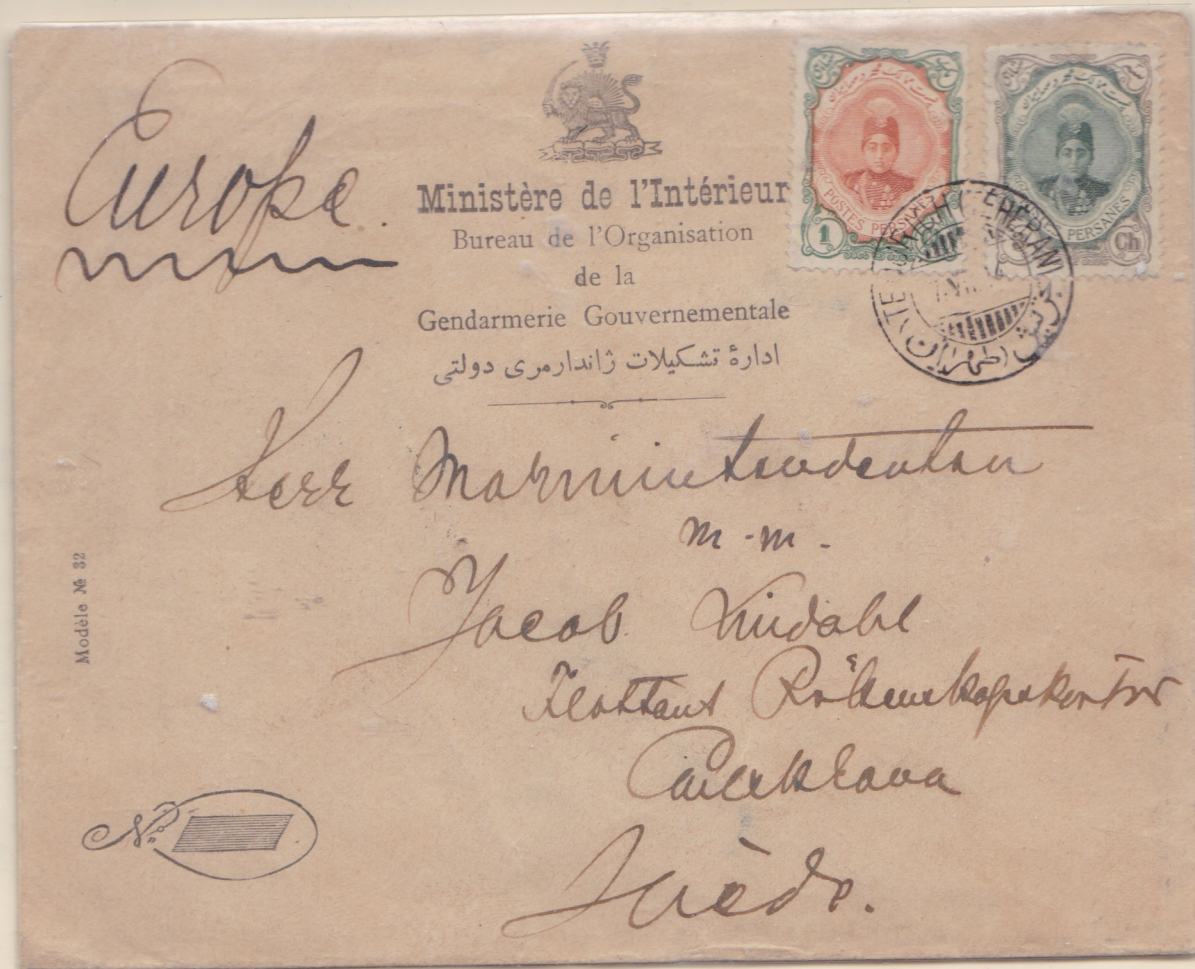 Europa.
Ministère de l'Intérieur
Bureau de l'Organisation
de la
Gendarmerie Gouvernementale
ادارهٔ تشکیلات ژاندارمری دولتی
POSTES PERSANES
1
PERSANES
Ch
Herr Marinintendenten
m.m.
Jacob Lindahl
Flottans Räkenskapskontor
Carlskrona
Suède.
Modèle № 32
No